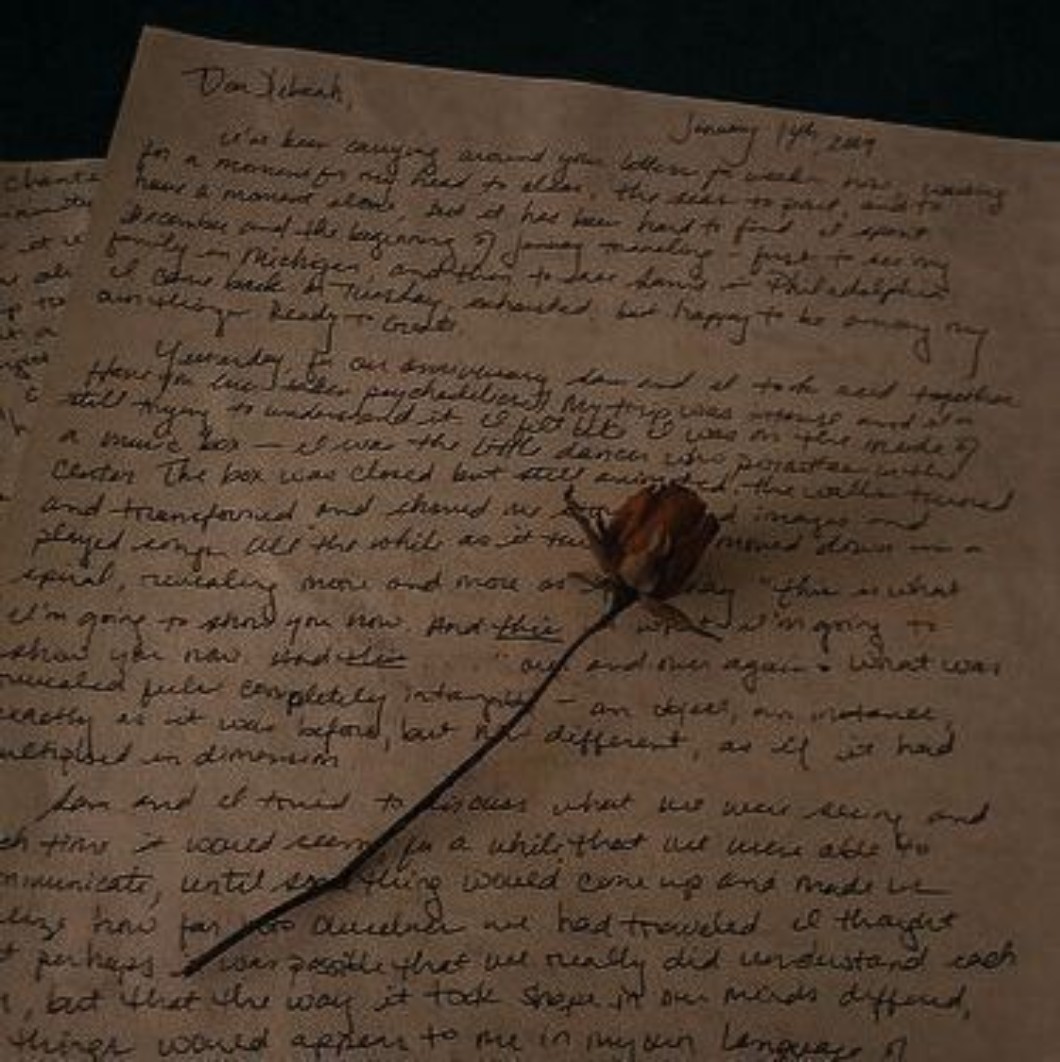 chante
Dear
January 14th, 2009
I've been carrying around your letters for weeks now, waiting
for a moment for my head to clear, the seas to part, and to
have a moment alone, but it has been hard to find. I spent
December and the beginning of January traveling - first to see my
family in Michigan, and then to see Sam's in Philadelphia
I came back to Tuesday, exhausted, but happy to be among my
own things. Ready to create.
Yesterday, for our anniversary Sam and I took acid together
Have you ever taken psychedelics? My trip was intense and I'm
still trying to understand it. I felt like I was on the inside of
a music box — I was the little dancer who pirouettes in the
center. The box was closed but still animated. The walls turned
and transformed and showed me images and
played songs. All the while as it moved down in a
spiral, revealing more and more as "this is what
I'm going to show you now. And this what I'm going to
show you now. And this " over and over again. What was
revealed feels completely intangible — an object, an instance,
exactly as it was before, but now different, as if it had
multiplied in dimension
Sam and I tried to discuss what we were seeing and
time it would seem for a while that we were able to
communicate, until something would come up and made us
how far into ourselves we had traveled. I thought
perhaps it was possible that we really did understand each
, but that the way it took shape in our minds differed,
things would appear to me in my own language of